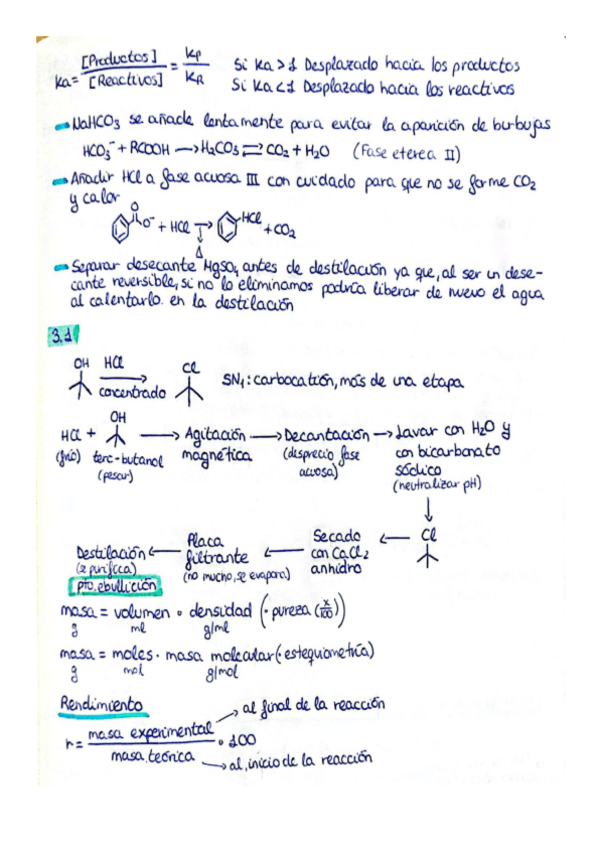 Ka = [Productos] / [Reactivos] = Kp / KR Si Ka > 1 Desplazado hacia los productos
Si Ka < 1 Desplazado hacia los reactivos
NaHCO3 se añade lentamente para evitar la aparición de burbujas
HCO3⁻ + RCOOH → H2CO3 ⇌ CO2 + H2O (Fase eterea II)
Añadir HCl a fase acuosa III con cuidado para que no se forme CO2
y calor
O
O⁻ + HCl → HCl + CO2
Δ
Separar desecante MgSO4 antes de destilación ya que, al ser un dese-
cante reversible, si no lo eliminamos podría liberar de nuevo el agua
al calentarlo. en la destilación
3.1
OH HCl Cl
concentrado SN1: carbocatión, más de una etapa
OH
HCl + → Agitación → Decantación → Lavar con H2O y
(frío) terc-butanol magnética (desprecio fase con bicarbonato
(pesar) acuosa) sódico
(neutralizar pH)
↓
Destilación ← Placa filtrante ← Secado con CaCl2 anhidro ← Cl
(se purifica) (no mucho, se evapora)
pto. ebullición
masa = volumen · densidad (· pureza (x/100))
g ml g/ml
masa = moles · masa molecular (· estequiometría)
g mol g/mol
Rendimiento → al final de la reacción
r = masa experimental / masa teórica · 100
→ al inicio de la reacción